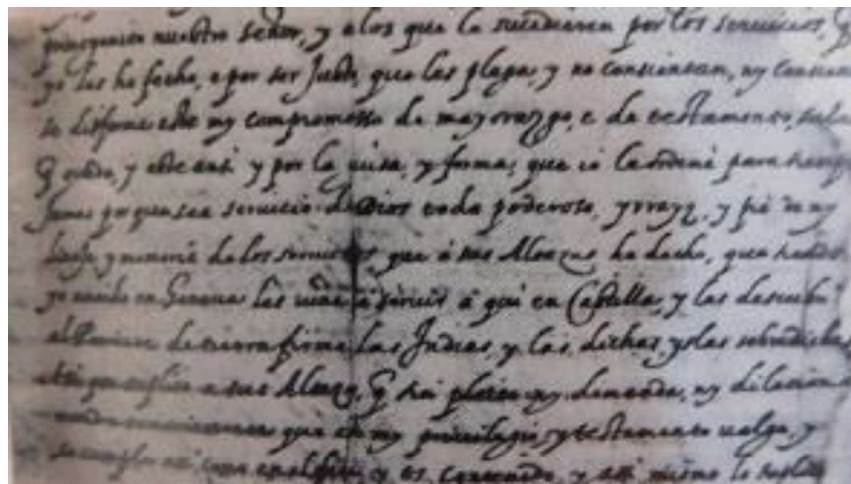 nuestro señor, y a los que le sucedieren por los servicios, q
yo les he fecho, e por ser justo, que les plega, y no consientan, ny consient
se disforme este my compromisso de mayorazgo, e de testamento, salvo
q quede, y este ansi y por la guisa, y forma, que io le ordené para siemp
jamas por que sea servicio de Dios todo poderoso, y rrayz, y pié de my
linaje y memoria de los servicios que á sus Altezas he hecho, que siendo
yo nacido en Genova les vine á servir á qui en Castilla, y les descubri
al Poniente de tierra firme las Indias, y las dichas yslas sobredichas
suplico a sus Altezas, q sin pleito ny demanda, ny dilacion
que este my privilegio, y testamento valga, y
se cumpla asi como en el y es contenido, y assi mismo lo suplico